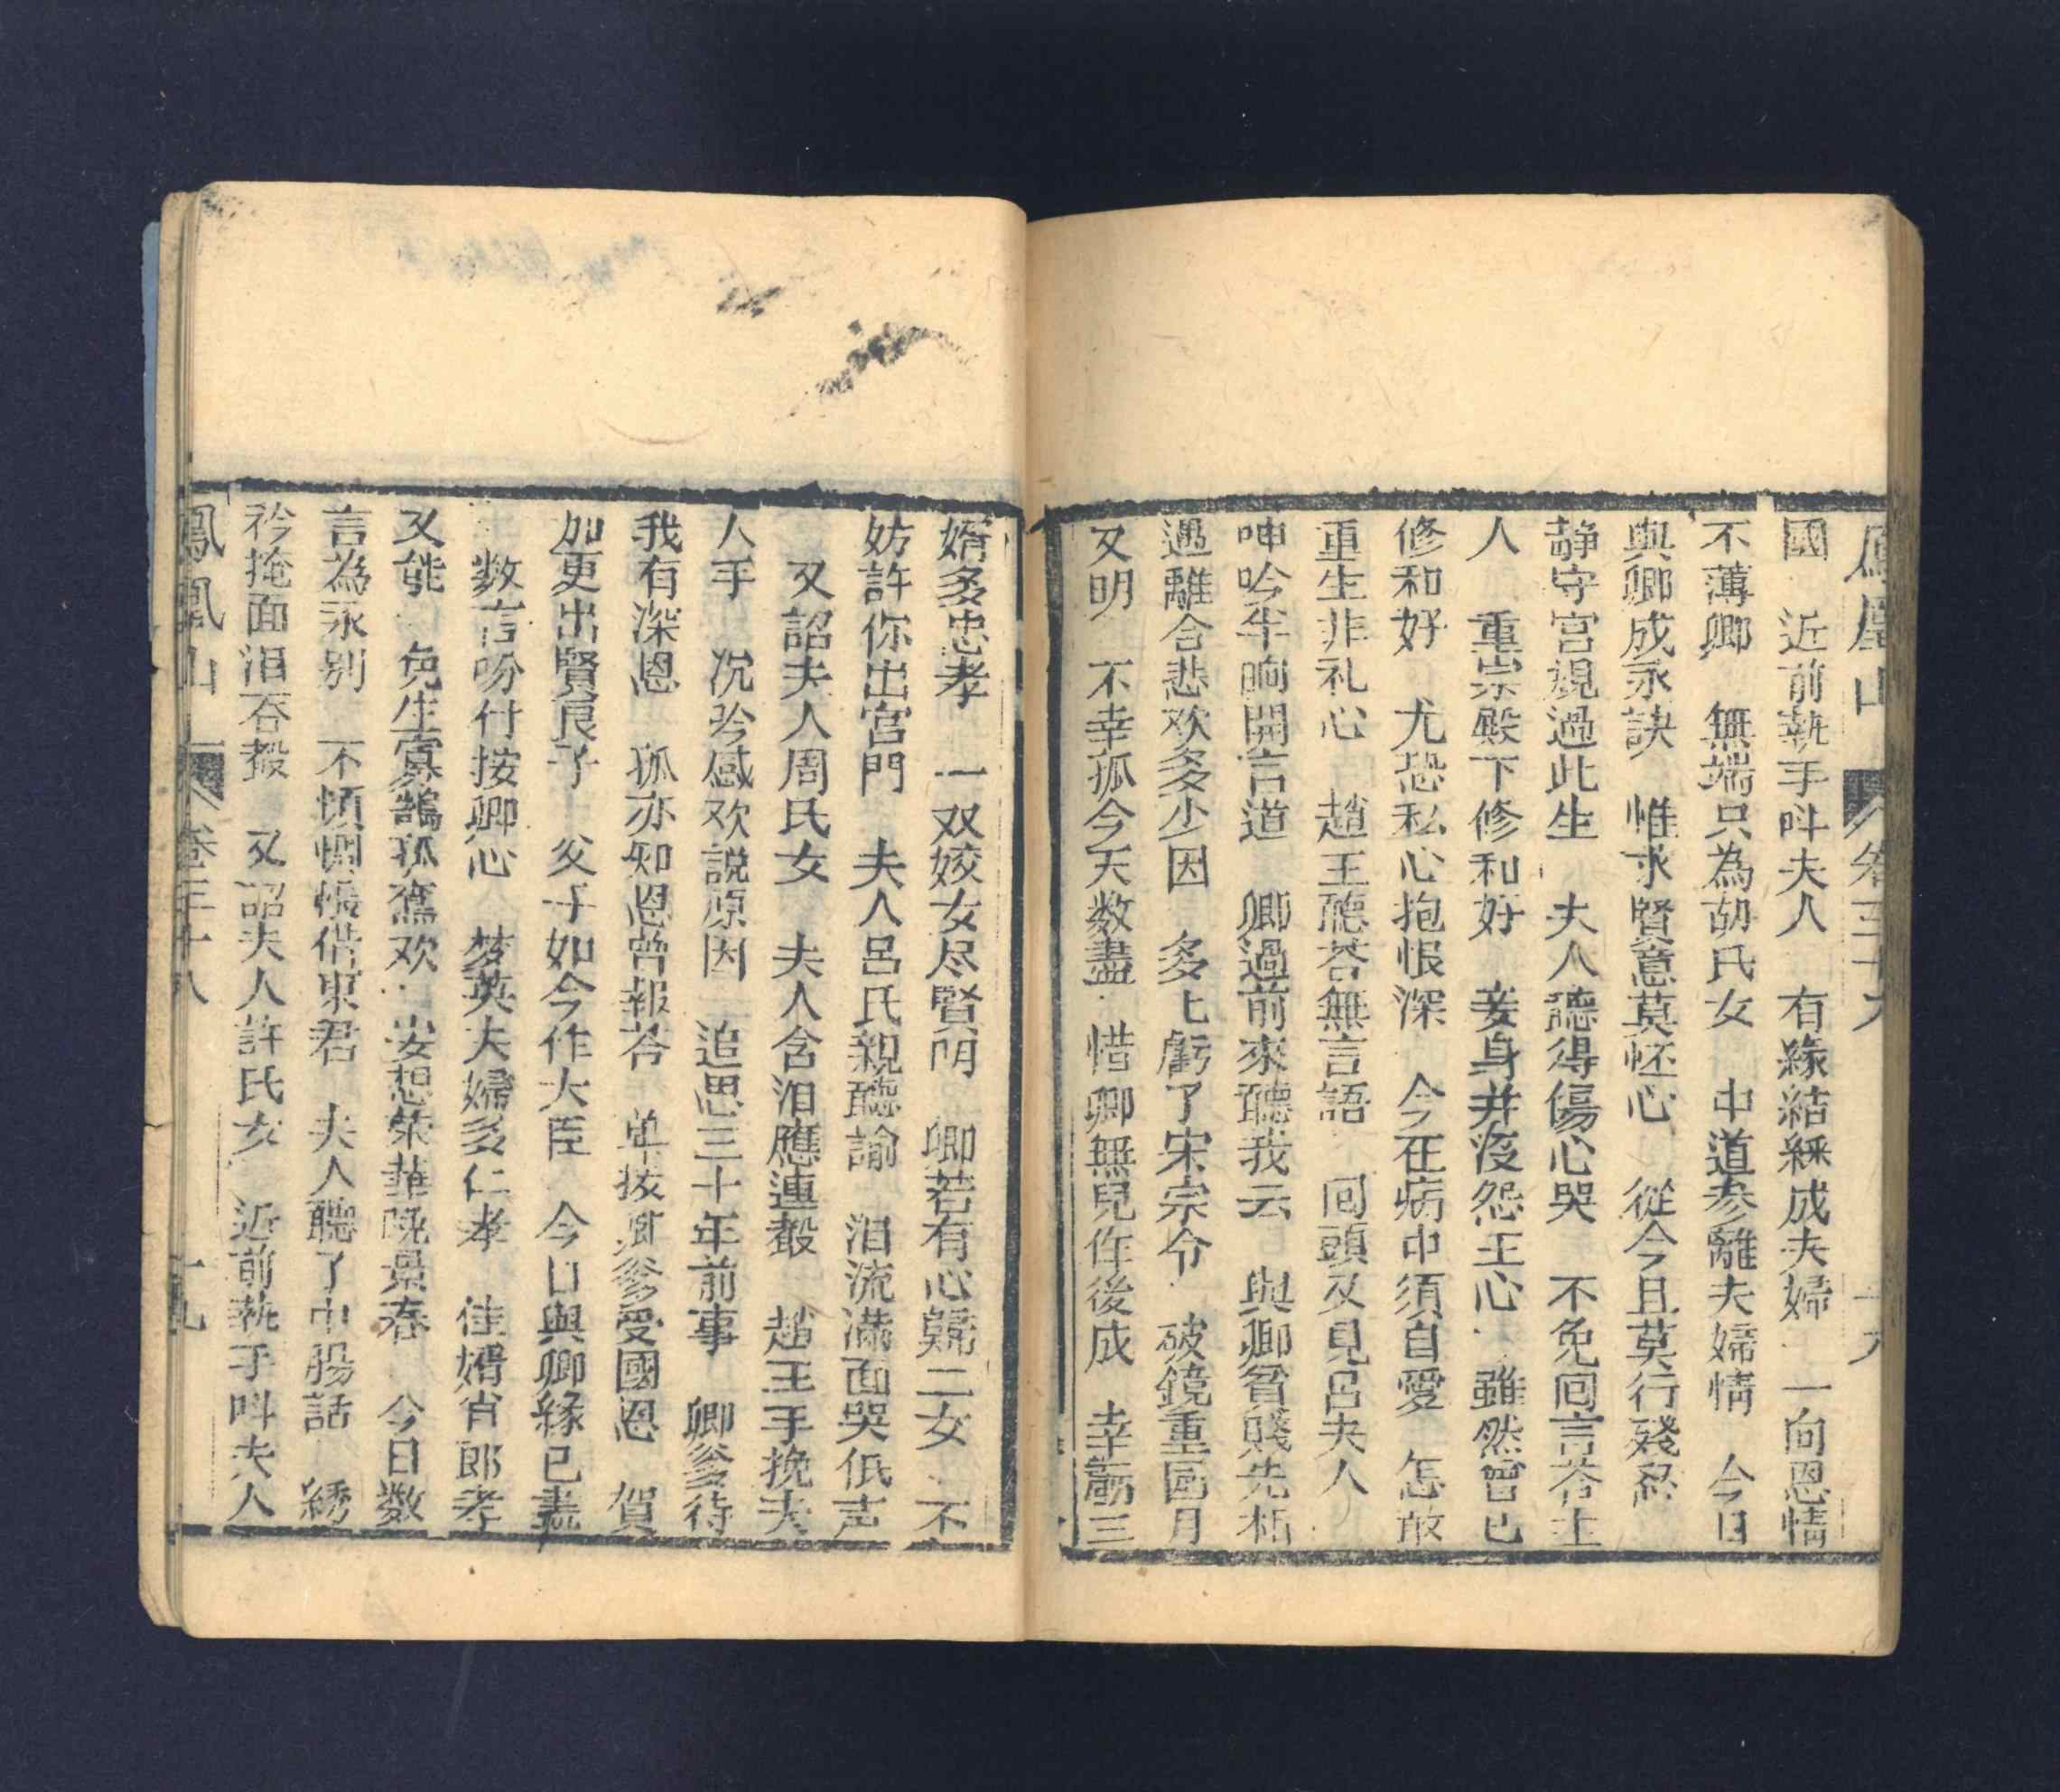 鳳凰山 卷三十八 十九
國 近前執手呌夫人 有緣結綵成夫婦 一向恩情
不薄卿 無端只為胡氏女 中道参離夫婦情 今日
與卿成永訣 惟求賢意莫怪心 從今且莫行殘忍
静守宮規過此生 夫人聽得傷心哭 不免回言荅主
人 重崇殿下修和好 妾身并没怨王心 雖然曾已
修和好 尤恐私心抱恨深 今在病中須自愛 怎敢
重生非礼心 趙王聽荅無言語 回頭又見呂夫人
呻吟半晌開言道 卿過前來聽我云 與卿貧賤先相
遇離合悲欢多少因 多上虧了宋宗令 破鏡重圓月
又明 不幸孤今天数盡 惜卿無兒作後成 幸虧三
婿多忠孝 一双姣女尽賢明 卿若有心歸二女 不
妨許你出宮門 夫人呂氏親聽諭 泪流滿面哭低声
又詔夫人周氏女 夫人含泪應連聲 趙王手挽夫
人手 况吟感欢説原因 追思三十年前事 卿爹待
我有深恩 孤亦知恩曾報荅 单接卿爹受國恩 賀
加更出賢良子 父子如今作大臣 今日與卿緣已盡
数言吩付按卿心 梦英夫婦多仁孝 佳婿肖郎孝
又能 免生寡鵠孤鸞欢 安想荣華晚景春 今日数
言為永别 不煩惆悵借東君 夫人聽了中腸話 綉
衿掩面泪吞聲 又詔夫人許氏女 近前執手呌夫人
鳳凰山 卷三十八 十九